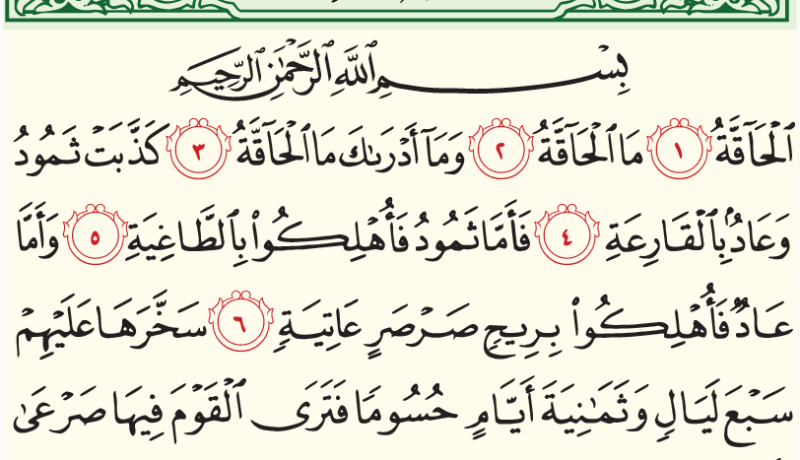 بِسْمِ ٱللَّهِ ٱلرَّحْمَٰنِ ٱلرَّحِيمِ
ٱلْحَآقَّةُ ١ مَا ٱلْحَآقَّةُ ٢ وَمَآ أَدْرَىٰكَ مَا ٱلْحَآقَّةُ ٣ كَذَّبَتْ ثَمُودُ
وَعَادُۢ بِٱلْقَارِعَةِ ٤ فَأَمَّا ثَمُودُ فَأُهْلِكُوا۟ بِٱلطَّاغِيَةِ ٥ وَأَمَّا
عَادٌ فَأُهْلِكُوا۟ بِرِيحٍ صَرْصَرٍ عَاتِيَةٍ ٦ سَخَّرَهَا عَلَيْهِمْ
سَبْعَ لَيَالٍ وَثَمَٰنِيَةَ أَيَّامٍ حُسُومًا فَتَرَى ٱلْقَوْمَ فِيهَا صَرْعَىٰ